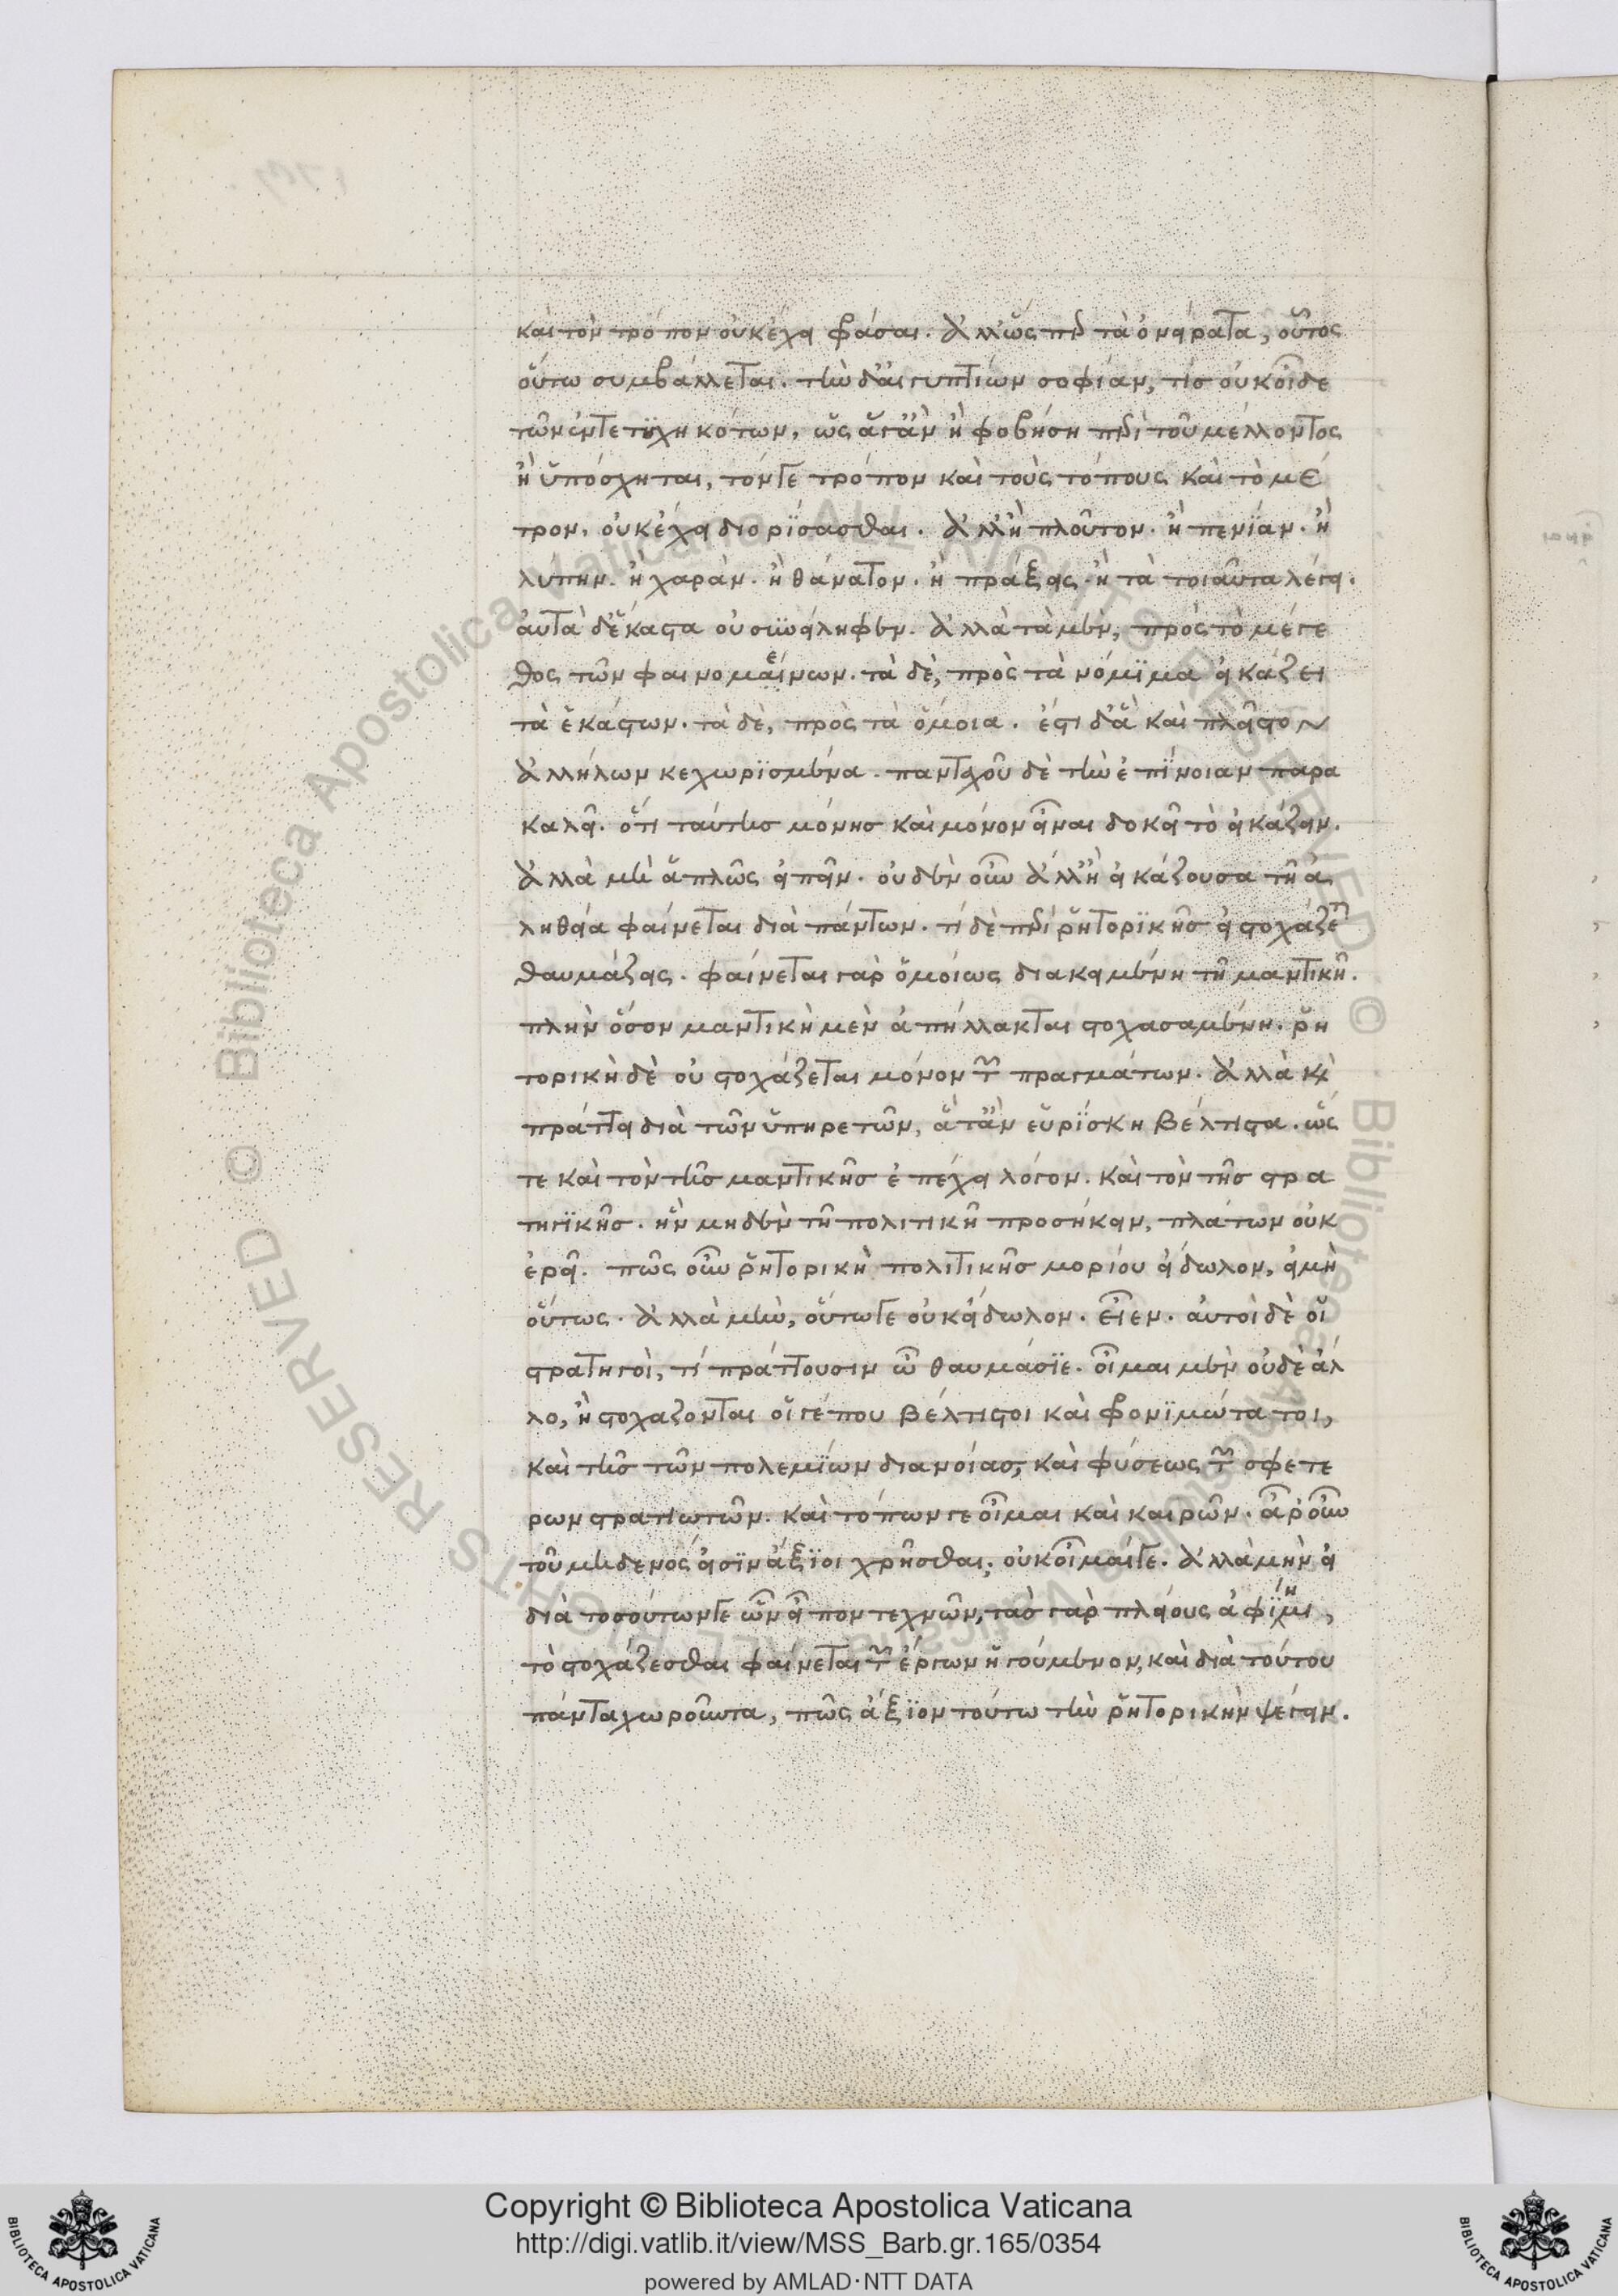 καὶ τὸν τρόπον οὐκ ἔχει φράσαι. ἀλλ' ὥσπερ τὰ ὀνείρατα, οὕτως
οὕτω συμβάλλεται. τὴν δ' αἰγυπτίων σοφίαν, τίς οὐκ οἶδε
τῶν ἐντετυχηκότων, ὡς ἅττ' ἂν ἢ φοβήσῃ περὶ τοῦ μέλλοντος
ἢ ὑπόσχηται, τόν γε τρόπον καὶ τοὺς τόπους καὶ τὸ μέ
τρον, οὐκ ἔχει διορίσασθαι. ἀλλ' ἢ πλοῦτον. ἢ πενίαν. ἢ
λύπην. ἢ χαράν. ἢ θάνατον. ἢ πράξεις. ἢ τὰ τοιαῦτα λέγει.
αὐτὰ δ' ἕκαστα οὐ συνείληφεν. ἀλλὰ τὰ μὲν, πρὸς τὸ μέγε
θος τῶν φαινομαίνων. τὰ δὲ, πρὸς τὰ νόμιμα εἰκάζει
τὰ ἑκάστων. τὰ δὲ, πρὸς τὰ ὅμοια. ἔστι δ' ἃ καὶ πλεῖστον
ἀλλήλων κεχωρισμένα. πανταχοῦ δὲ τὴν ἐπίνοιαν παρα
καλεῖ. ὅτι ταύτης μόνης καὶ μόνον εἶναι δοκεῖ τὸ εἰκάζειν.
ἀλλὰ μὴ ἁπλῶς εἰπεῖν. οὐδὲν οὖν ἀλλ' ἢ εἰκάζουσα τῇ ἀ
ληθείᾳ φαίνεται διὰ πάντων. τί δὲ περὶ ῥητορικῆς εἰ στοχάζεται
θαυμάζεις. φαίνεται γὰρ ὁμοίως διακειμένη τῇ μαντικῇ.
πλὴν ὅσον μαντικὴ μὲν ἀπήλλακται στοχασαμένη. ῥη
τορικὴ δὲ οὐ στοχάζεται μόνον τῶν πραγμάτων. ἀλλὰ καὶ
πράττει διὰ τῶν ὑπηρετῶν, ἅττ' ἂν εὑρίσκῃ βέλτιστα. ὥς
τε καὶ τὸν τῆς μαντικῆς ἐπέχει λόγον. καὶ τὸν τῆς στρα
τηγικῆς. ἣν μηδὲν τῇ πολιτικῇ προσήκειν, πλάτων οὐκ
ἐρεῖ. πῶς οὖν ῥητορικὴ πολιτικῆς μορίου εἴδωλον, εἰ μὴ
οὕτως. ἀλλὰ μὴν, οὕτω γε οὐκ εἴδωλον. εἶεν. αὐτοὶ δὲ οἱ
στρατηγοὶ, τί πράττουσιν ὦ θαυμάσιε. οἶμαι μὲν οὐδὲ ἀλ
λο, ἢ στοχαζονται οἵ γέ που βέλτιστοι καὶ φρονιμώτατοι,
καὶ τῆς τῶν πολεμίων διανοίας, καὶ φύσεως τῶν σφετέ
ρων στρατιωτῶν. καὶ τόπων γε οἶμαι καὶ καιρῶν. ἆρ' οὖν
τοῦ μηδενός εἰσιν ἄξιοι χρῆσθαι; οὐκ οἶμαί γε. ἀλλὰ μὴν εἰ
διὰ τοσούτων γε ὧν εἶπον τεχνῶν, τὰς γὰρ πλείους ἀφίημι,
τὸ στοχάζεσθαι φαίνεται τῶν ἔργων ἡγούμενον, καὶ διὰ τούτου
πάντα χωροῦντα, πῶς ἄξιον τούτῳ τὴν ῥητορικὴν ψέγειν.
Copyright © Biblioteca Apostolica Vaticana
http://digi.vatlib.it/view/MSS_Barb.gr.165/0354
powered by AMLAD·NTT DATA